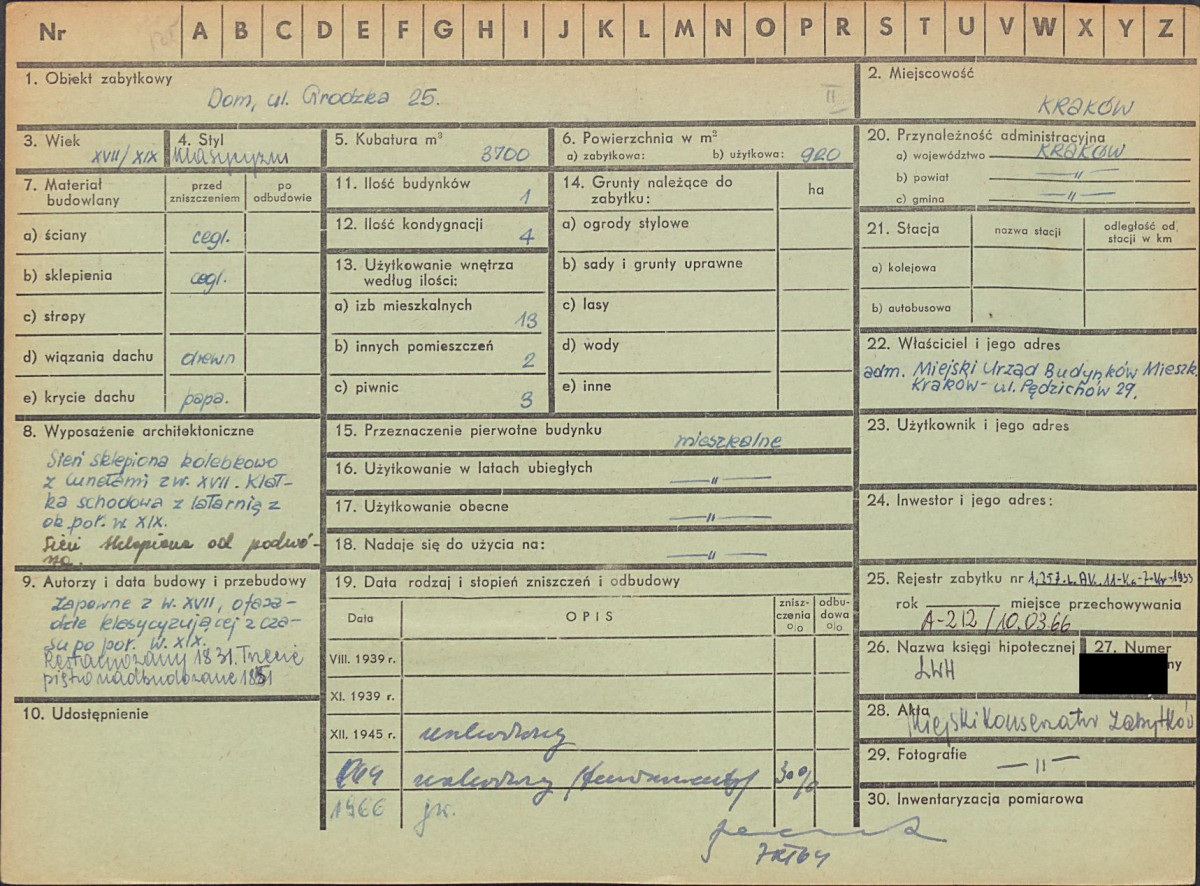 Nr A B C D E F G H I J K L M N O P R S T U V W X Y Z
1. Obiekt zabytkowy
Dom, ul. Grodzka 25.
II
2. Miejscowość
KRAKÓW
3. Wiek
XVII/XIX
4. Styl
klasycyzm
5. Kubatura m³
3700
6. Powierzchnia w m²
a) zabytkowa: b) użytkowa: 920
20. Przynależność administracyjna
a) województwo KRAKÓW
b) powiat -"-
c) gmina -"-
7. Materiał budowlany
przed zniszczeniem
po odbudowie
a) ściany cegl.
b) sklepienia cegl.
c) stropy
d) wiązania dachu drewn
e) krycie dachu papa.
11. Ilość budynków
1
12. Ilość kondygnacji
4
13. Użytkowanie wnętrza
według ilości:
a) izb mieszkalnych
13
b) innych pomieszczeń
2
c) piwnic
3
14. Grunty należące do
zabytku:
ha
a) ogrody stylowe
b) sady i grunty uprawne
c) lasy
d) wody
e) inne
21. Stacja
nazwa stacji
odległość od
stacji w km
a) kolejowa
b) autobusowa
22. Właściciel i jego adres
adm. Miejski Urząd Budynków Mieszk.
Kraków - ul. Pędzichów 29.
8. Wyposażenie architektoniczne
Sień sklepiona kolebkowo
z lunetami z w. XVII. Klat-
ka schodowa z latarnią z
ok. poł. w. XIX.
Sień sklepiona od podwó-
rza.
15. Przeznaczenie pierwotne budynku
mieszkalne
16. Użytkowanie w latach ubiegłych
-"-
17. Użytkowanie obecne
-"-
18. Nadaje się do użycia na:
-"-
23. Użytkownik i jego adres
24. Inwestor i jego adres:
9. Autorzy i data budowy i przebudowy
Zapewne z w. XVII, o fasa-
dzie klasycyzującej z cza-
su po poł. w. XIX.
Restaurowany 1831. Trzecie
piętro nadbudowane 1881
10. Udostępnienie
19. Data rodzaj i stopień zniszczeń i odbudowy
Data
OPIS
znisz-
czenia
%
odbu-
dowa
%
VIII. 1939 r.
XI. 1939 r.
XII. 1945 r.
30%
1966 jw.
25. Rejestr zabytku nr
rok miejsce przechowywania
A-212/10.03.66
26. Nazwa księgi hipotecznej
LWH
27. Numer
ny
28. Akta
Miejski Konserwator Zabytków
29. Fotografie
-"-
30. Inwentaryzacja pomiarowa